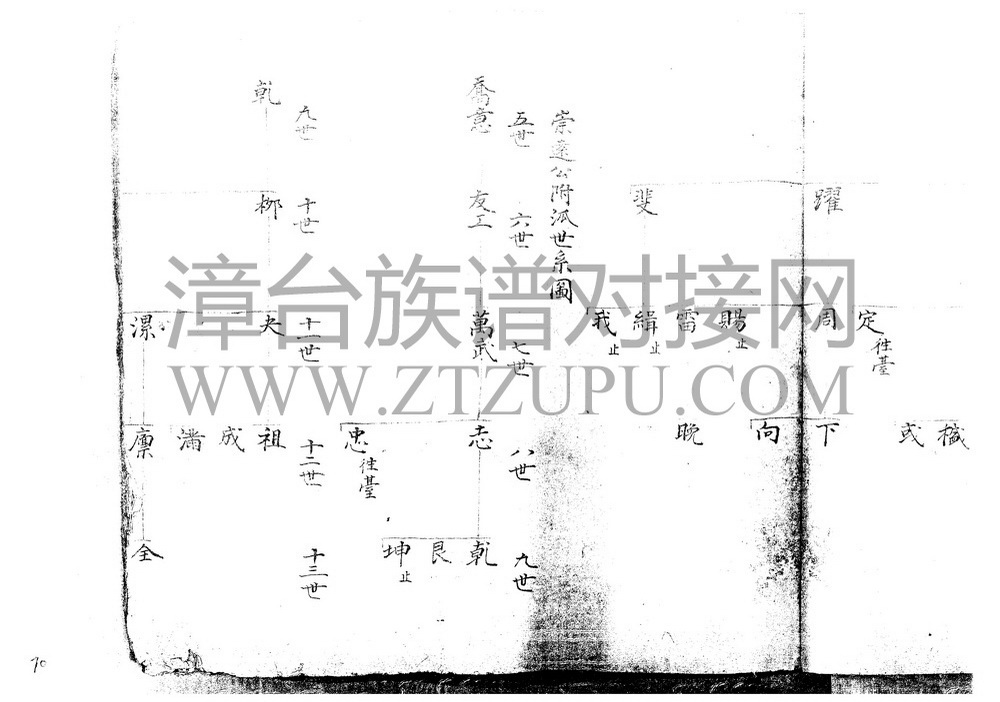 躍
定 往臺
周
樴
或
下
向
斐
賜 止
雷
緝 止
我 止
晚
崇遠公附派世系圖
五世
六世
七世
八世
九世
喬意
友工
萬武
志
忠 往臺
乾
艮
坤 止
九世
十世
十一世
十二世
十三世
乾
柳
夬
漯
祖
成
滿
廪
全
漳台族谱对接网
WWW.ZTZUPU.COM
70